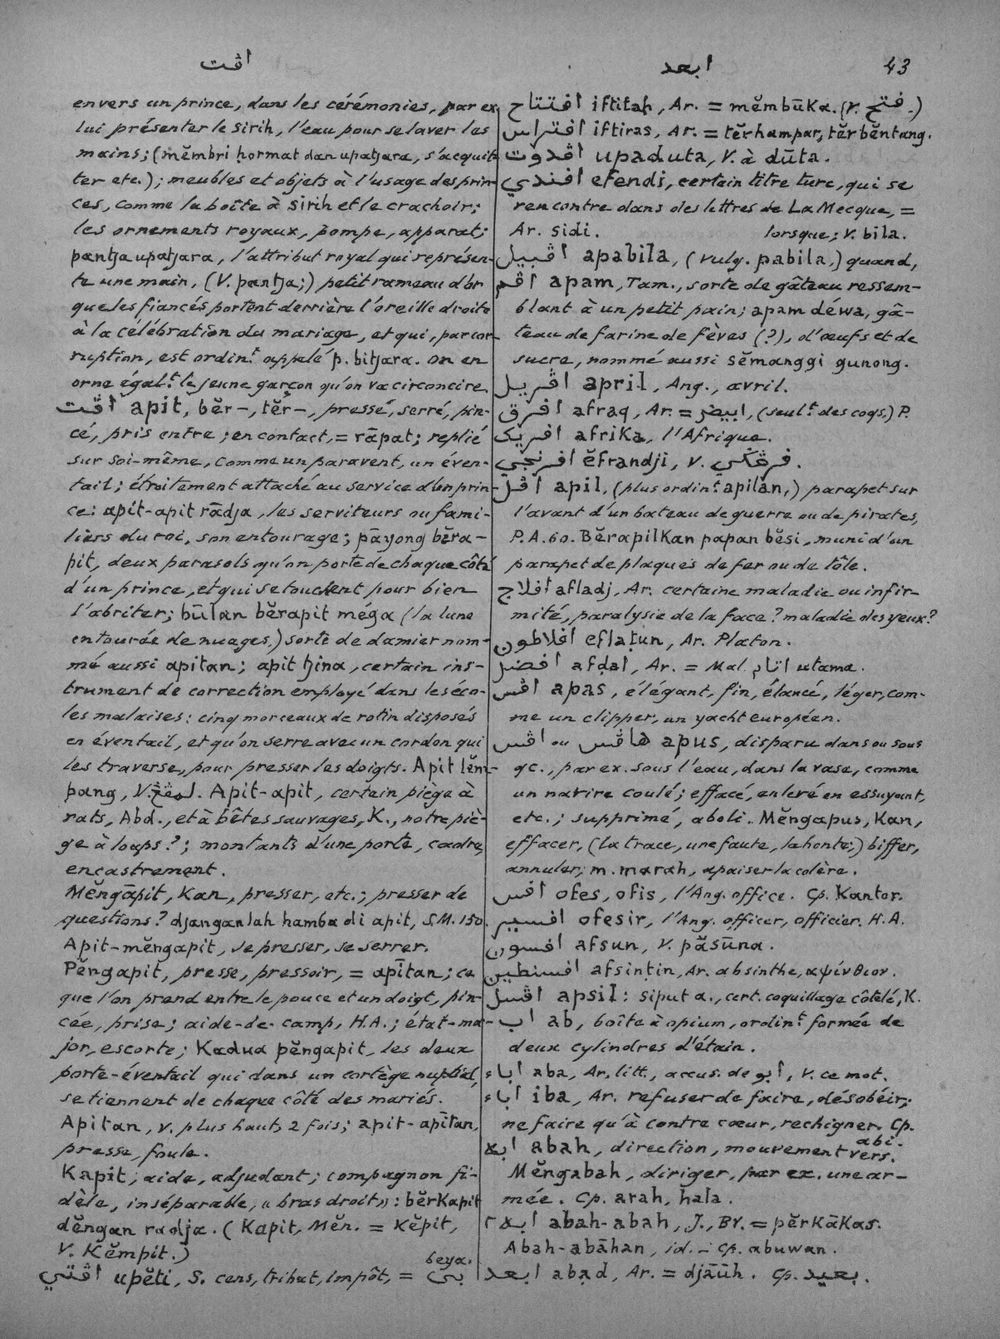 اڤت
ابعد
43
envers un prince, dans les cérémonies, par ex.
lui présenter le sirih, l'eau pour se laver les
mains; (mĕmbri hormat dan upatjara, s'acquit-
ter etc.); meubles et objets à l'usage des prin-
ces, comme la boîte à sirih et le crachoir;
les ornements royaux, pompe, apparat;
pantja upatjara, l'attribut royal qui représen-
te une main, (V. pantja;) petit rameau d'or
que les fiancés portent derrière l'oreille droite
à la célébration du mariage, et qui, par cor-
ruption, est ordint appelé p. bitjara. On en
orne égalt le jeune garçon qu'on va circoncire.
اڤت apit, bĕr-, tĕr-, pressé, serré, pin-
cé, pris entre; en contact, = rāpat; replié
sur soi-même, comme un paravent, un éven-
tail; étroitement attaché au service d'un prin-
ce: apit-apit rādja, les serviteurs ou fami-
liers du roi, son entourage; pāyong bĕra-
pit, deux parasols qu'on porte de chaque côté
d'un prince, et qui se touchent pour bien
l'abriter; būlan bĕrapit méga (la lune
entourée de nuages,) sorte de damier nom-
mé aussi apitan; apit tjina, certain ins-
trument de correction employé dans les éco-
les malaises: cinq morceaux de rotin disposés
en éventail, et qu'on serre avec un cordon qui
les traverse, pour presser les doigts. Apit lĕm-
pang, V. Apit-apit, certain piège à
rats, Abd., et à bêtes sauvages, K., notre piè-
ge à loups?; montants d'une porte, cadre,
encastrement.
Mĕngāpit, kan, presser, etc.; presser de
questions? djanganlah hamba di apit, S.M. 150.
Apit-mĕngapit, se presser, se serrer.
Pĕngapit, presse, pressoir, = apītan; ce
que l'on prend entre le pouce et un doigt, pin-
cée, prise; aide-de-camp, H.A.; état-ma-
jor, escorte; Kadua pĕngapit, les deux
porte-éventail qui dans un cortège nuptial,
se tiennent de chaque côté des mariés.
Apitan, v. plus haut, 2 fois; apit-apītan,
presse, foule.
Kapit, aide, adjudant; compagnon fi-
dèle, inséparable, « bras droit »: bĕrkapit
dĕngan radja. (Kapit, Mĕn. = Kĕpit,
V. Kĕmpit.)
beya.
اڤتي upĕti, S. cens, tribut, impôt, = بي
افتتاح iftitaḥ, Ar. = mĕmbūka. (V. فتح.)
افتراس iftiras, Ar. = tĕrhampar, tĕrbĕntang.
اڤدوت upaduta, V. à dūta.
افندي efendi, certain titre turc, qui se
rencontre dans des lettres de La Mecque, =
Ar. sidi. lorsque; V. bila.
اڤبيل apabila, (vulg. pabila,) quand,
اڤم apam, Tam., sorte de gâteau ressem-
blant à un petit pain; apam déwa, gâ-
teau de farine de fèves (?), d'œufs et de
sucre, nommé aussi sĕmanggi gunong.
اڤريل april, Ang., avril.
افرق afraq, Ar. = ابيض, (seult des coqs,) P.
افريك afrika, l'Afrique.
افرنجي ĕfrandji, v. فرڠڬي.
اڤل apil, (plus ordint apilan,) parapet sur
l'avant d'un bateau de guerre ou de pirates,
P.A. 60. Bĕrapilkan papan bĕsi, muni d'un
parapet de plaques de fer ou de tôle.
افلاج afladj, Ar. certaine maladie ou infir-
mité, paralysie de la face? maladie des yeux?
افلاطون eflaṭun, Ar. Platon.
افضل afḍal, Ar. = Mal. اتام utama.
اڤس apas, élégant, fin, élancé, léger, com-
me un clipper, un yacht européen.
اڤس ou هاڤس apus, disparu dans ou sous
qc., par ex. sous l'eau, dans la vase, comme
un navire coulé; effacé, enlevé en essuyant,
etc.; supprimé, aboli. Mĕngapus, kan,
effacer, (la trace, une faute, la honte;) biffer,
annuler; m. marah, apaiser la colère.
افس ofes, ofis, l'Ang. office. Cp. Kantor.
افسير ofesir, l'Ang. officer, officier. H.A.
افسون afsun, V. pāsūna.
افسنطين afsintin, Ar. absinthe, αψίνθιον.
اڤسل apsil: siput a., cert. coquillage côtelé, K.
اب ab, boîte à opium, ordint formée de
deux cylindres d'étain.
اباء aba, Ar. litt., accus. de ابو, V. ce mot.
اباء iba, Ar. refuser de faire, désobéir;
ne faire qu'à contre cœur, rechigner. Cp. abi.
ابه abah, direction, mouvement vers.
Mĕngabah, diriger, par ex. une ar-
mée. Cp. arah, hala.
ابه٢ abah-abah, J., By. = pĕrkākas.
Abah-abāhan, id. – Cp. abuwan.
ابعد abạd, Ar. = djāūh. Cp. بعيد.